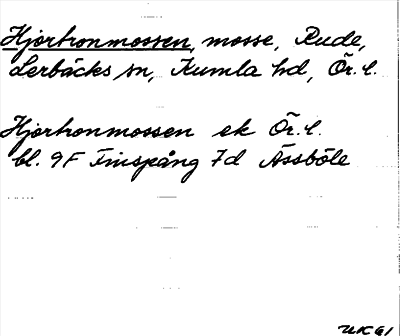 Hjortronmossen, mosse, Rude,
Lerbäcks sn, Kumla hd, Ör. l.
Hjortronmossen ek Ör. l.
bl. 9F Finspång 7d Åssböle